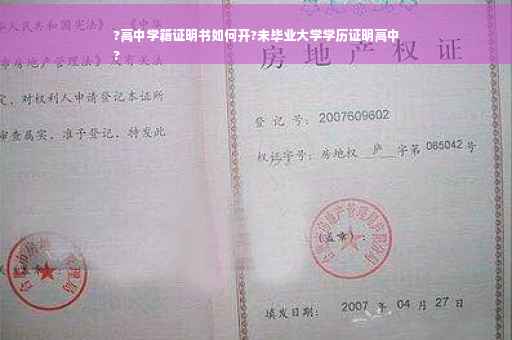 ?高中学籍证明书如何开?未毕业大学学历证明高中
?
人民共和国宪法》
房地产管理法》及有关法
定，对权利人申请登记本证所
审查属实，准予登记，特发此
房地产权证
登 记 号：2007609602
权证字号：房地权 庐 字第 085042 号
(盖章)：
填发日期： 2007 年 04 月 27 日